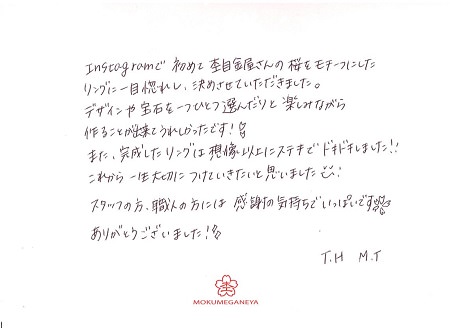 Instagramで 初めて 杢目金屋さんの 桜をモチーフにした
リングに一目惚れし、決めさせていただきました。
デザインや宝石を一つひとつ選んだりと楽しみながら
作ることが出来てうれしかったです!
また、完成したリングは想像以上にステキでドキドキしました!!
これから一生大切につけていきたいと思いました
スタッフの方、職人の方には 感謝の気持ちでいっぱいです
ありがとうございました!
T.H M.T
MOKUMEGANEYA